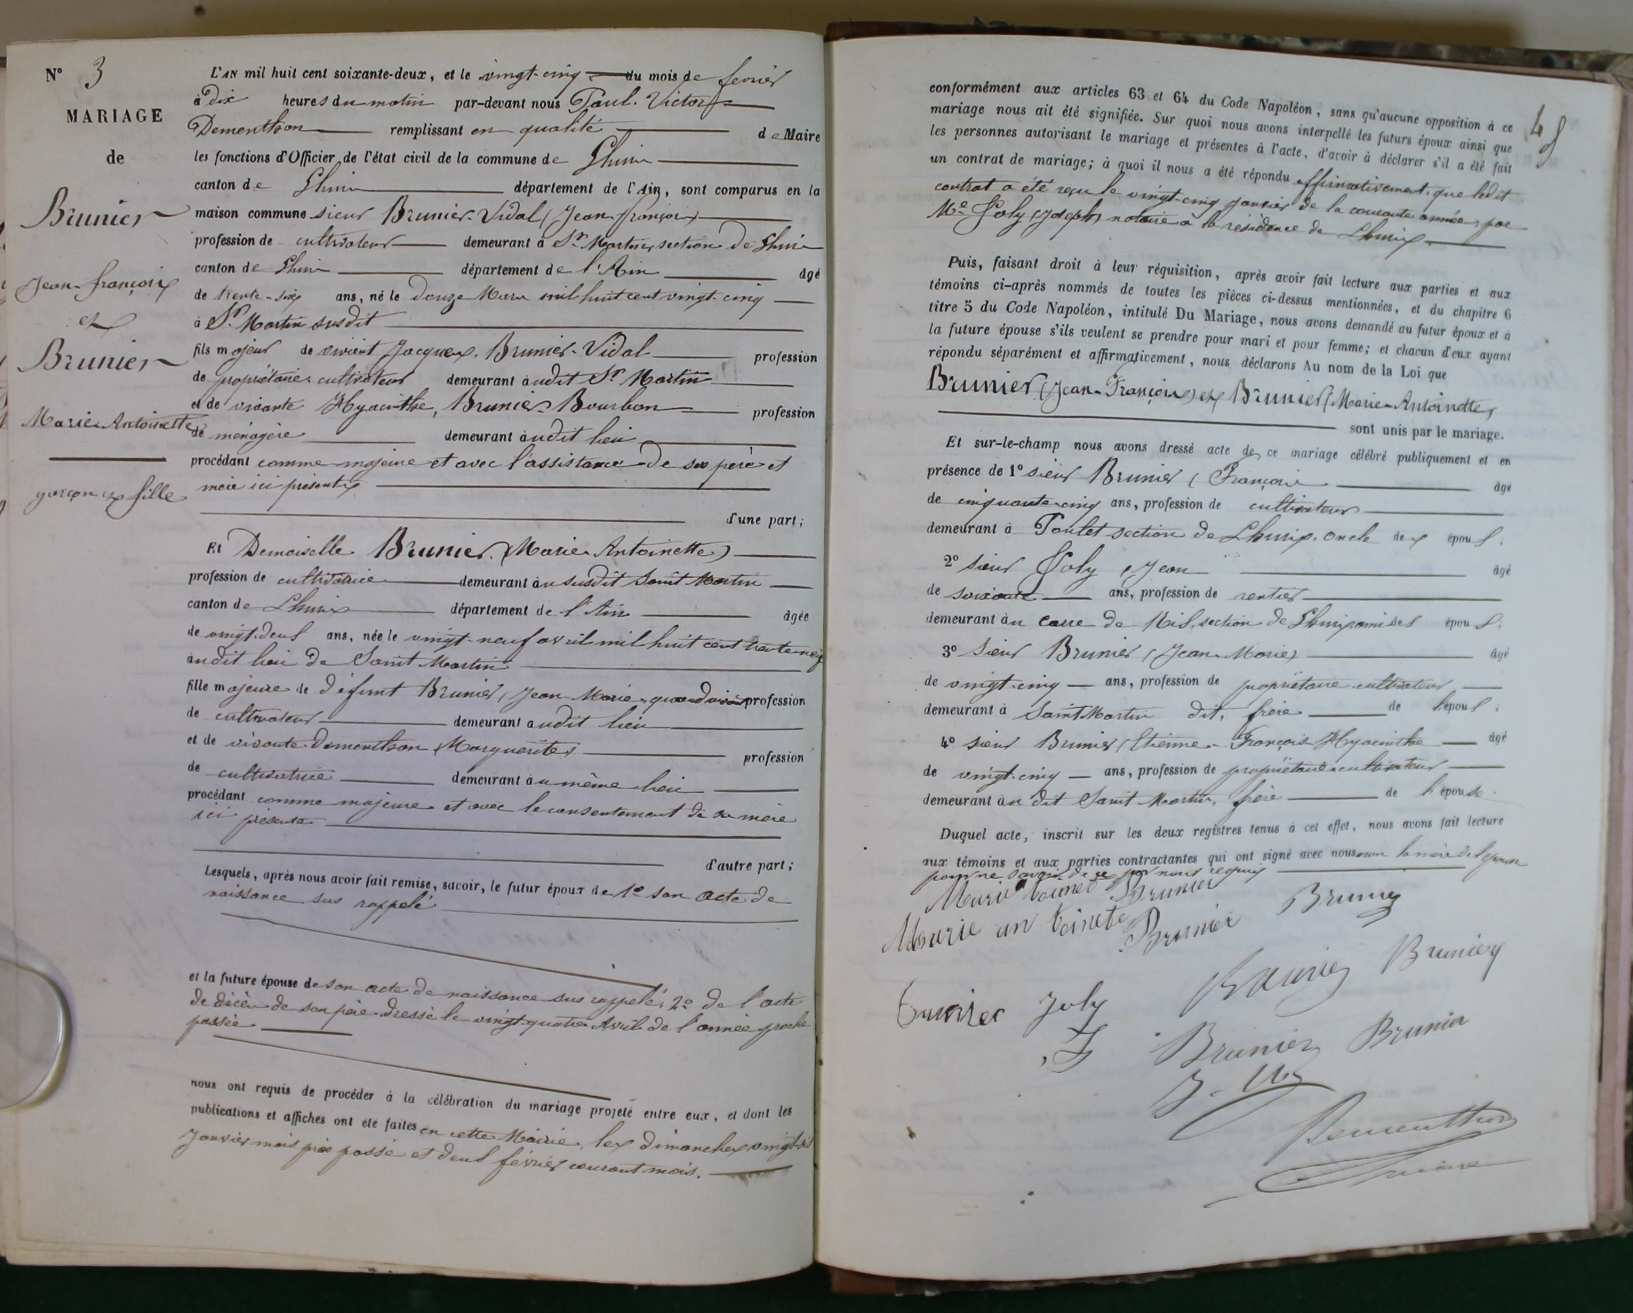 N° 3
MARIAGE
de
Brunier
Jean-François
et
Brunier
Marie-Antoinette
garçon et fille
L'AN mil huit cent soixante-deux, et le vingt-cinq du mois de février
à dix heures du matin par-devant nous Paul-Victor
Dementhon remplissant en qualité de Maire
les fonctions d'Officier de l'état civil de la commune de Lhuis
canton de Lhuis département de l'Ain, sont comparus en la
maison commune sieur Brunier-Vidal (Jean-François)
profession de cultivateur demeurant à St Martin, section de Lhuis
canton de Lhuis département de l'Ain âgé
de trente-six ans, né le douze Mars mil huit cent vingt-cinq
à St Martin susdit
fils majeur de vivant Jacques Brunier-Vidal profession
de propriétaire cultivateur demeurant audit St Martin
et de vivante Hyacinthe Brunier-Bourbon profession
de ménagère demeurant audit lieu
procédant comme majeur et avec l'assistance de ses père et
mère ici présents
d'une part;
Et Demoiselle Brunier (Marie-Antoinette)
profession de cultivatrice demeurant au susdit Saint Martin
canton de Lhuis département de l'Ain âgée
de vingt-deux ans, née le vingt-neuf avril mil huit cent trente-neuf
audit lieu de Saint Martin
fille majeure de défunt Brunier (Jean-Marie) quand vivait profession
de cultivateur demeurant audit lieu
et de vivante Dementhon (Marguerite) profession
de cultivatrice demeurant au même lieu
procédant comme majeure et avec le consentement de sa mère
ici présente
d'autre part;
Lesquels, après nous avoir fait remise, savoir, le futur époux de 1° son acte de
naissance sus rappelé
et la future épouse de son acte de naissance sus rappelé; 2° de l'acte
de décès de son père dressé le vingt-quatre Avril de l'année proche
passée
nous ont requis de procéder à la célébration du mariage projeté entre eux, et dont les
publications et affiches ont été faites en cette Mairie, les dimanches vingt-six
Janvier mois près passé et deux février courant mois.
48
conformément aux articles 63 et 64 du Code Napoléon, sans qu'aucune opposition à ce
mariage nous ait été signifiée. Sur quoi nous avons interpellé les futurs époux ainsi que
les personnes autorisant le mariage et présentes à l'acte, d'avoir à déclarer s'il a été fait
un contrat de mariage; à quoi il nous a été répondu affirmativement, que ledit
contrat a été reçu le vingt-cinq janvier de la courante année, par
Me Joly (Joseph) notaire à la résidence de Lhuis
Puis, faisant droit à leur réquisition, après avoir fait lecture aux parties et aux
témoins ci-après nommés de toutes les pièces ci-dessus mentionnées, et du chapitre 6
titre 5 du Code Napoléon, intitulé Du Mariage, nous avons demandé au futur époux et à
la future épouse s'ils veulent se prendre pour mari et pour femme; et chacun d'eux ayant
répondu séparément et affirmativement, nous déclarons Au nom de la Loi que
Brunier (Jean-François) et Brunier (Marie-Antoinette)
sont unis par le mariage.
Et sur-le-champ nous avons dressé acte de ce mariage célébré publiquement et en
présence de 1° sieur Brunier (François) âgé
de cinquante-cinq ans, profession de cultivateur
demeurant à section de Lhuis, oncle des époux.
2° sieur Joly (Jean) âgé
de soixante ans, profession de rentier
demeurant au section de Lhuis, ami des époux.
3° sieur Brunier (Jean-Marie) âgé
de vingt-cinq ans, profession de propriétaire cultivateur
demeurant à Saint Martin dit, frère de l'époux.
4° sieur Brunier (Etienne-François-Hyacinthe) âgé
de vingt-cinq ans, profession de propriétaire cultivateur
demeurant au dit Saint Martin, frère de l'épouse.
Duquel acte, inscrit sur les deux registres tenus à cet effet, nous avons fait lecture
aux témoins et aux parties contractantes qui ont signé avec nous non la mère de l'époux
pour ne savoir de ce par nous requis
Brunier
Marie an toinete Brunier Brunier
Brunier Brunier
Joly
Brunier Brunier
Dementhon
maire